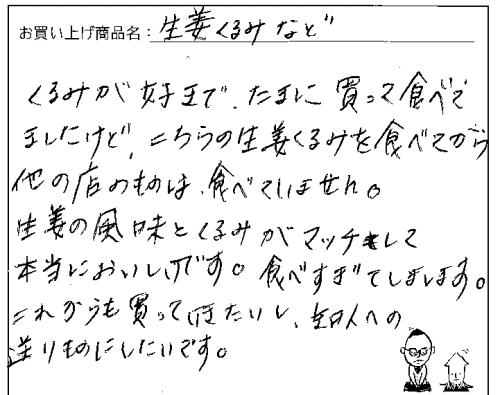 お買い上げ商品名: 生姜くるみなど
くるみが好きで、たまに買って食べて
ましたけど、こちらの生姜くるみを食べてから
他の店のものは、食べていません。
生姜の風味とくるみがマッチして
本当においしいです。食べすぎてしまします。
これからも買っていきたいし、知人への
送りものにしたいです。